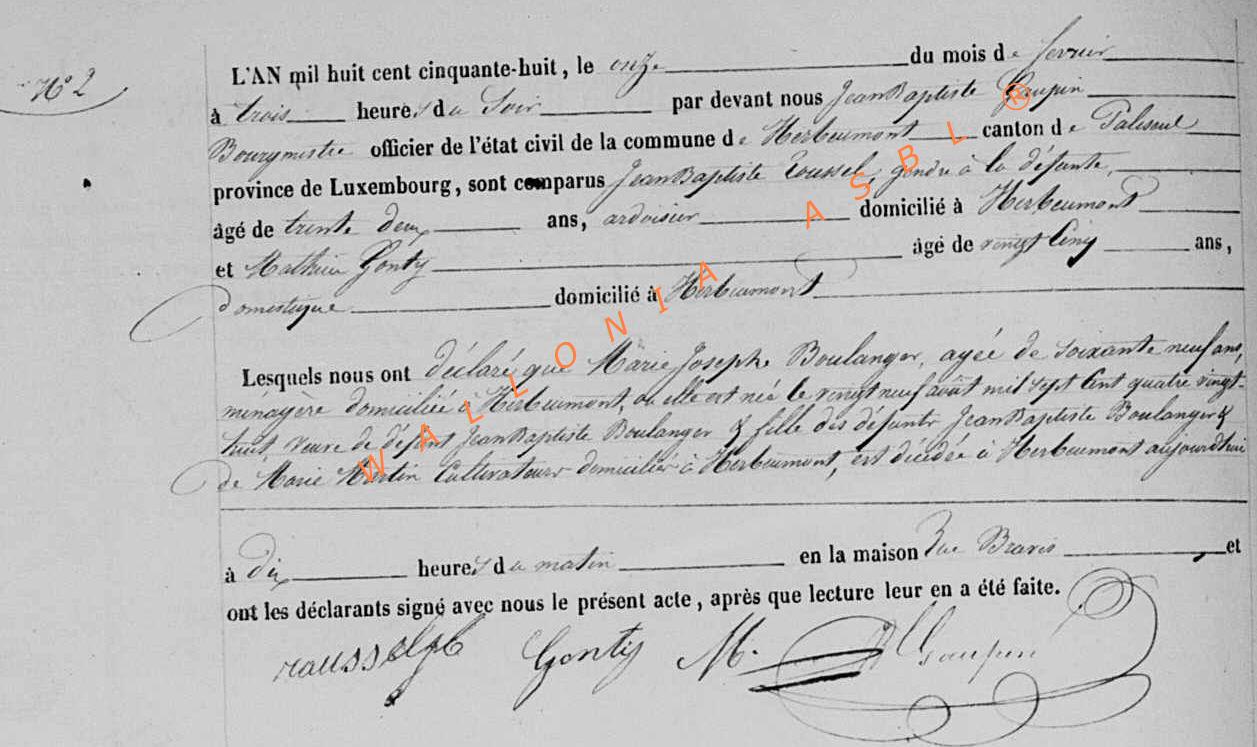 N° 2
L'AN mil huit cent cinquante-huit, le onze du mois de fevrier
à trois heures du Soir par devant nous Jean Baptiste Goupin
Bourgmestre officier de l'état civil de la commune de Herbeumont canton de Paliseul
province de Luxembourg, sont comparus Jean Baptiste gendre à la défunte,
âgé de trente deux ans, ardoisier domicilié à Herbeumont
et Mathieu Gonty âgé de vingt Cinq ans,
domestique domicilié à Herbeumont
Lesquels nous ont déclaré que Marie Josephe Boulanger, agée de Soixante neuf ans,
ménagère domiciliée à Herbeumont, où elle est née le vingt neuf août mil sept Cent quatre vingt-
huit, veuve de défunt Jean Baptiste Boulanger & fille des défunts Jean Baptiste Boulanger &
de Marie Martin Cultivateurs domiciliés à Herbeumont, est décédée à Herbeumont aujourdhui
à dix heures du matin en la maison Rue et
ont les déclarants signé avec nous le présent acte, après que lecture leur en a été faite.
Gonty M. Goupin
WALLONIA ASBL ®